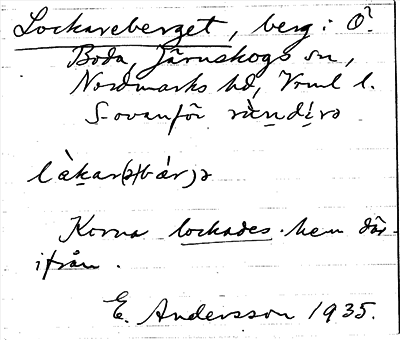 Lockareberget, berg i Ö.
Boda, Järnskogs sn,
Nordmarks hd, Vrml l.
S ovanför
Korna lockades hem där-
ifrån.
E. Andersson 1935.